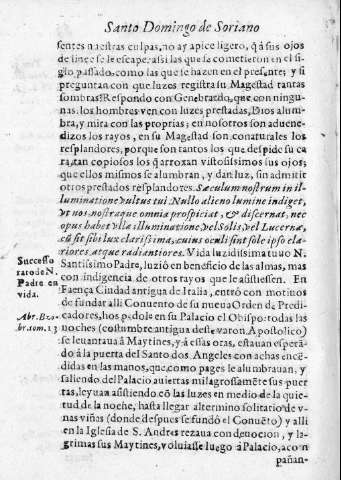 Santo Domingo de Soriano
sentes nuestras culpas, no ay apice ligero, q̃ à sus ojos
de lince se le escape: assi las que se cometieron en el si-
glo passado, como las que se hazen en el presẽte; y si
preguntan con que luzes registra su Magestad tantas
sombras? Respondo con Genebrardo, que con ningu-
nas: los hombres ven con luzes prestadas, Dios alum-
bra, y mira con las proprias; en nosotros son aduene-
dizos los rayos, en su Magestad son conaturales los
resplandores, porque son tantos los que despide su ca
ra, tan copiosos los q̃ arroxan vistosissimos sus ojos;
que ellos mismos se alumbran, y dan luz, sin admitir
otros prestados resplandores. Sæculum nostrum in il-
luminatione vultus tui. Nullo alieno lumine indiget,
vt nos, nostraque omnia prospiciat, & discernat, nec
opus habet vlla illuminatione, vel Solis, vel Lucernæ,
cũ sit sibi lux clarissima, cuius oculi sint sole ipso cla-
riores, atque radiantiores. Vida luzidissima tuuo N.
Santissimo Padre, luzió en beneficio de las almas, mas
con indigencia de otros rayos que le assistiessen. En
Faença Ciudad antigua de Italia, entró con motiuos
de fundar alli Conuento de su nueua Orden de Predi-
cadores, hospedole en su Palacio el Obispo: todas las
noches (costumbre antigua deste varon Apostolico)
se leuantaua à Maytines, y à essas oras, estauan esperã-
do à la puerta del Santo dos Angeles con achas ence-
didas en las manos, que, como pages le alumbrauan, y
saliendo del Palacio auiertas milagrosamẽte sus puer
tas, le yuan asistiendo cõ las luzes en medio de la quie-
tud de la noche, hasta llegar al termino solitario de v-
nas viñas (donde despues se fundó el Conuẽto) y alli
en la Iglesia de S. Andres rezaua con deuocion, y la-
grimas sus Maytines, voluiasse luego à Palacio, acom
pañan-
Successo
raro de N.
Padre en
vida.
Abr. Bzo-